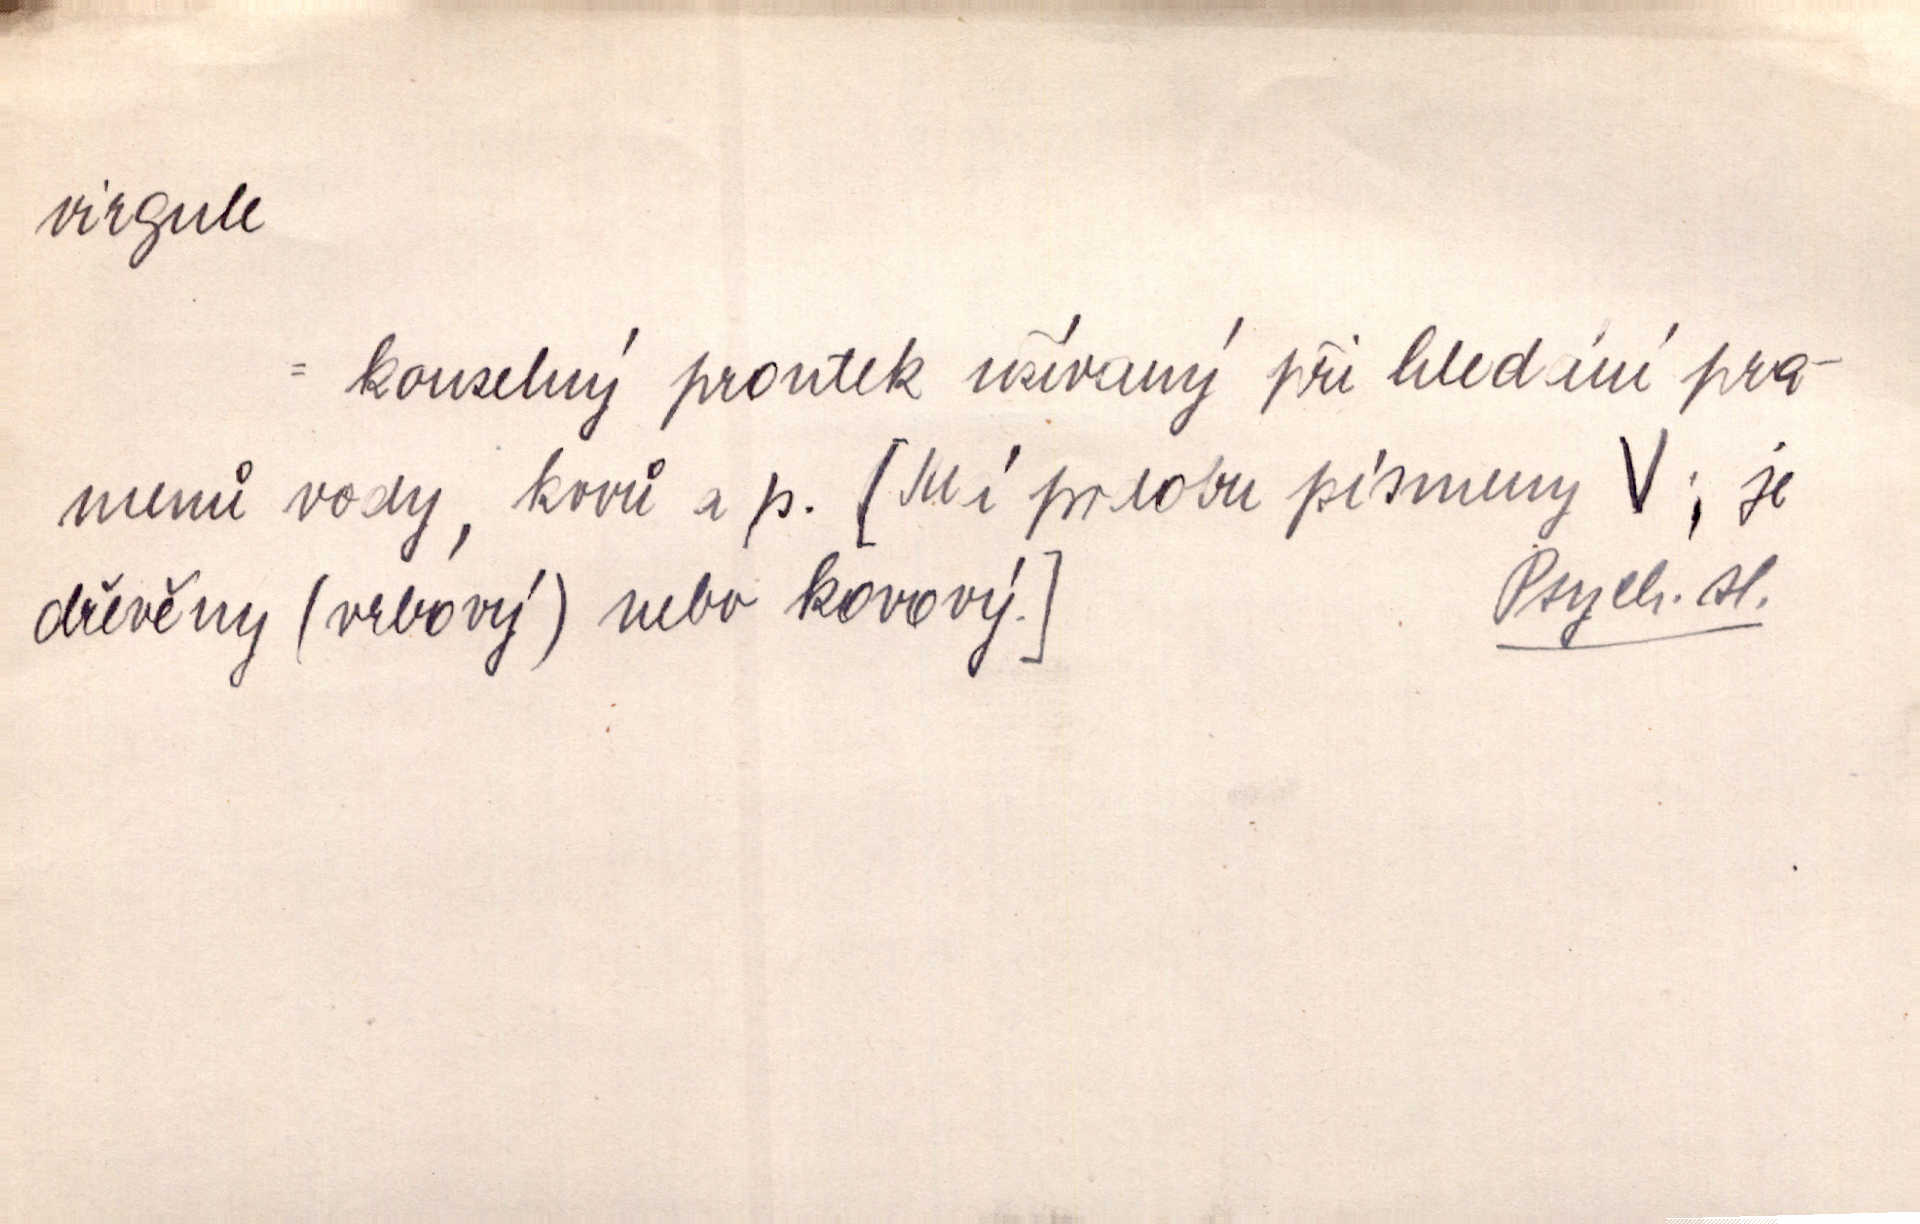 virgule
= kouzelný proutek užívaný při hledání pra-
menů vody, kovů a p. [Má podobu písmeny V; je
dřevěný (vrbový) nebo kovový.]
Psych. sl.